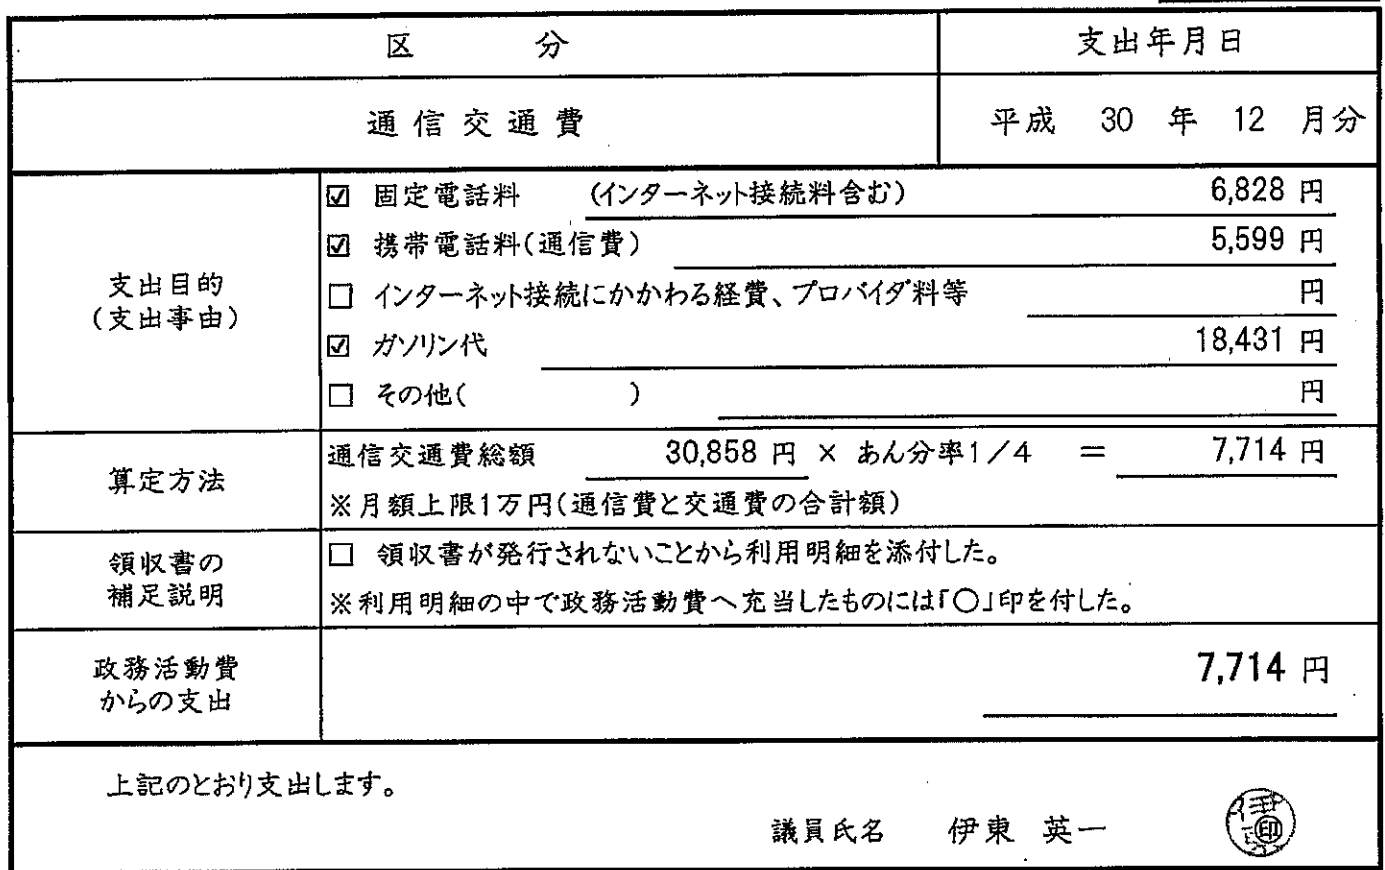 区 分 支出年月日
通信交通費 平成 30 年 12 月分
支出目的
(支出事由)
☑ 固定電話料 (インターネット接続料含む) 6,828 円
☑ 携帯電話料(通信費) 5,599 円
□ インターネット接続にかかわる経費、プロバイダ料等 円
☑ ガソリン代 18,431 円
□ その他( ) 円
算定方法
通信交通費総額 30,858 円 × あん分率1/4 = 7,714 円
※月額上限1万円(通信費と交通費の合計額)
領収書の
補足説明
□ 領収書が発行されないことから利用明細を添付した。
※利用明細の中で政務活動費へ充当したものには「○」印を付した。
政務活動費
からの支出
7,714 円
上記のとおり支出します。
議員氏名 伊東 英一 ㊞